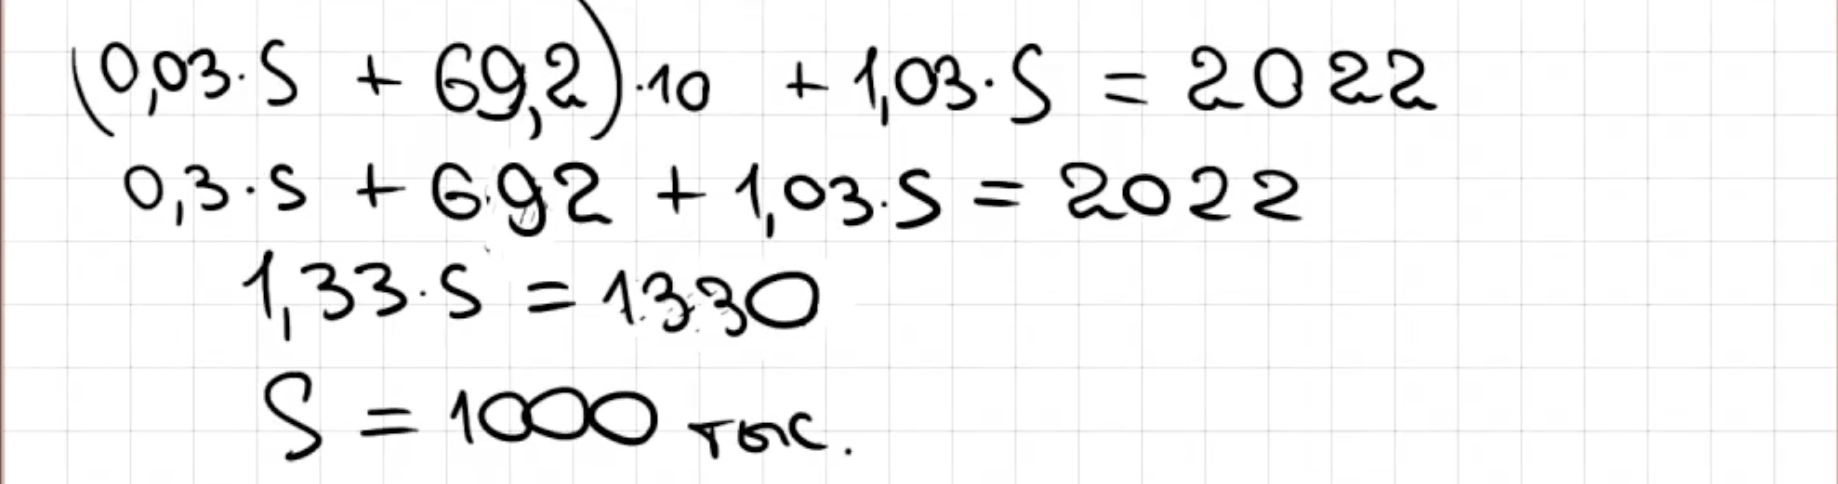 (0,03·S + 69,2)·10 + 1,03·S = 2022
0,3·S + 692 + 1,03·S = 2022
1,33·S = 1330
S = 1000 тыс.